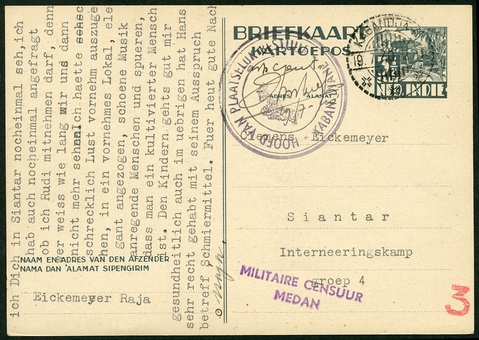 BRIEFKAART
KARTOEPOS
KABANDJAHE
NED. INDIE
HOOFD VAN PLAATSELIJK
KABANDJAHE
ADRES ALAMAT
Clemens Eickemeyer
Siantar
Interneeringskamp
groep 4
MILITAIRE CENSUUR
MEDAN
3
NAAM EN ADRES VAN DEN AFZENDER
NAMA DAN ALAMAT SIPENGIRIM
Eickemeyer Raja
ich Dich in Siantar nocheinmal seh, ich
hab auch nocheinmal angefragt
ob ich Rudi mitnehmen darf, denn
wer weiss wie lang wir uns dann
nicht mehr sehn. Ich haette
schrecklich Lust vornehm auszuge
hen, in ein vornehmes Lokal, ele
gant angezogen, schoene Musik
anregende Menschen und spueren,
dass man ein kultivierter Mensch
ist. Den Kindern gehts gut mir
gesundheitlich auch im uebrigen hat Hans
sehr recht gehabt mit seinem Ausspruch
betreff Schmiermittel. Fuer heut gute Nach